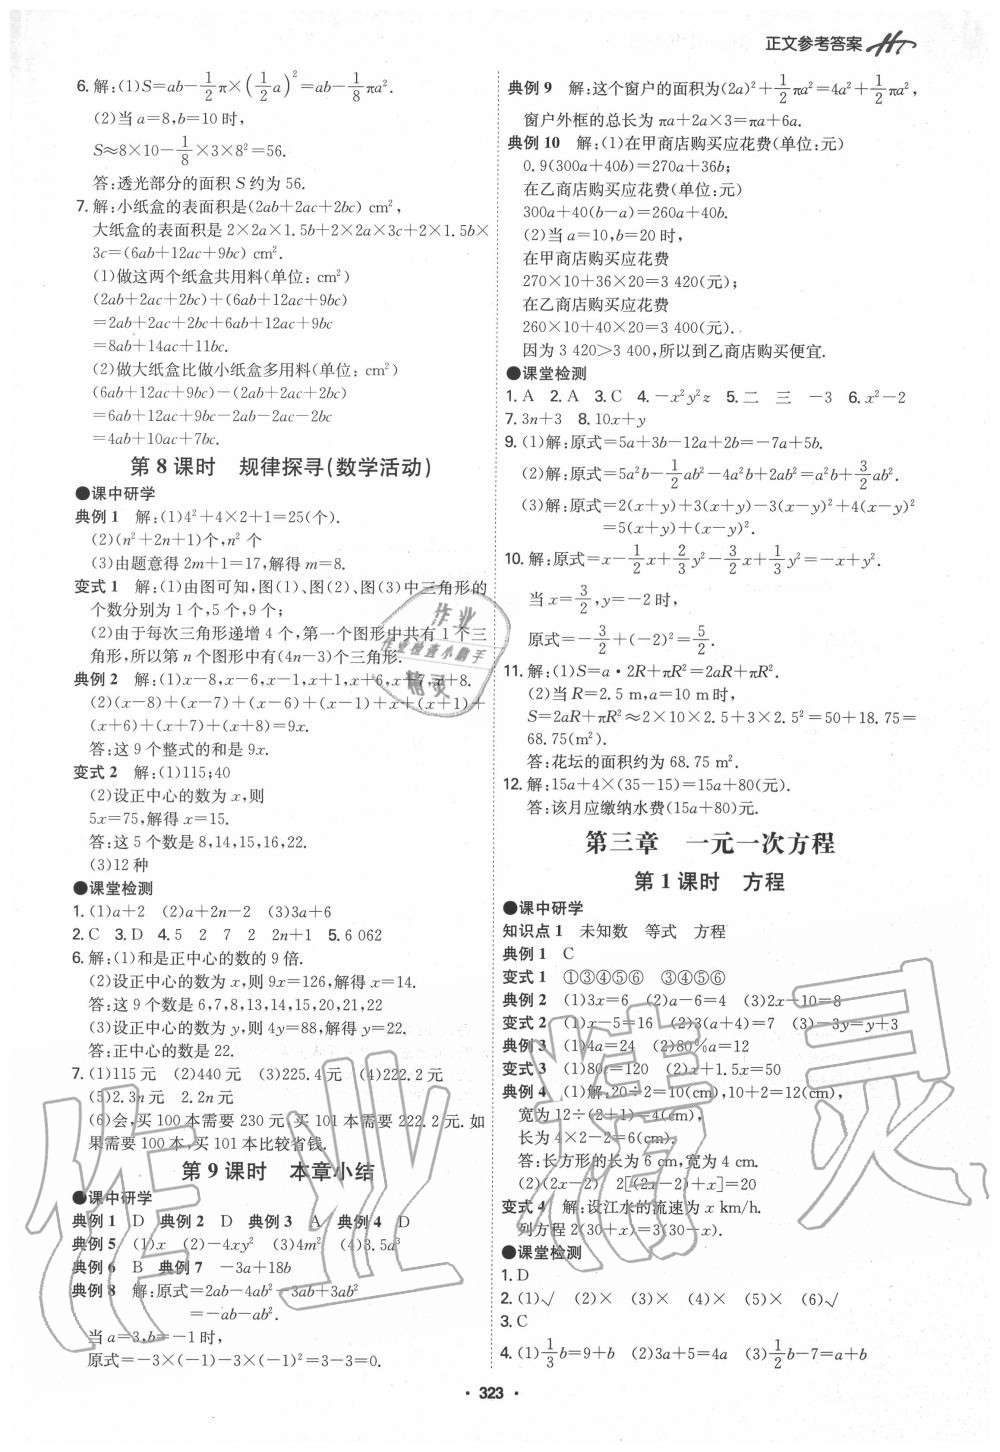 正文参考答案
6. 解:(1)S=ab−1/2π×(1/2a)²=ab−1/8πa².
(2)当 a=8,b=10 时,
S≈8×10−1/8×3×8²=56.
答:透光部分的面积 S 约为 56.
7. 解:小纸盒的表面积是(2ab+2ac+2bc) cm²,
大纸盒的表面积是 2×2a×1.5b+2×2a×3c+2×1.5b×
3c=(6ab+12ac+9bc) cm².
(1)做这两个纸盒共用料(单位: cm²)
(2ab+2ac+2bc)+(6ab+12ac+9bc)
=2ab+2ac+2bc+6ab+12ac+9bc
=8ab+14ac+11bc.
(2)做大纸盒比做小纸盒多用料(单位: cm²)
(6ab+12ac+9bc)−(2ab+2ac+2bc)
=6ab+12ac+9bc−2ab−2ac−2bc
=4ab+10ac+7bc.
第 8 课时 规律探寻(数学活动)
●课中研学
典例 1 解:(1)4²+4×2+1=25(个).
(2)(n²+2n+1)个,n² 个
(3)由题意得 2m+1=17,解得 m=8.
变式 1 解:(1)由图可知,图(1)、图(2)、图(3)中三角形的
个数分别为 1 个,5 个,9 个;
(2)由于每次三角形递增 4 个,第一个图形中共有 1 个三
角形,所以第 n 个图形中有(4n−3)个三角形.
典例 2 解:(1)x−8,x−6,x−1,x+1,x+6,x+7,x+8.
(2)(x−8)+(x−7)+(x−6)+(x−1)+x+(x+1)+
(x+6)+(x+7)+(x+8)=9x.
答:这 9 个整式的和是 9x.
变式 2 解:(1)115;40
(2)设正中心的数为 x,则
5x=75,解得 x=15.
答:这 5 个数是 8,14,15,16,22.
(3)12 种
●课堂检测
1. (1)a+2 (2)a+2n−2 (3)3a+6
2. C 3. D 4. 5 2 7 2 2n+1 5. 6 062
6. 解:(1)和是正中心的数的 9 倍.
(2)设正中心的数为 x,则 9x=126,解得 x=14.
答:这 9 个数是 6,7,8,13,14,15,20,21,22
(3)设正中心的数为 y,则 4y=88,解得 y=22.
答:正中心的数是 22.
7. (1)115 元 (2)440 元 (3)225.4 元 (4)222.2 元
(5)2.3n 元 2.2n 元
(6)会,买 100 本需要 230 元,买 101 本需要 222.2 元. 如
果需要 100 本,买 101 本比较省钱.
第 9 课时 本章小结
●课中研学
典例 1 D 典例 2 D 典例 3 A 典例 4 D
典例 5 (1)x (2)−4xy² (3)4m² (4)3.5a³
典例 6 B 典例 7 −3a+18b
典例 8 解:原式=2ab−4ab²−3ab+3ab²
=−ab−ab².
当 a=3,b=−1 时,
原式=−3×(−1)−3×(−1)²=3−3=0.
典例 9 解:这个窗户的面积为(2a)²+1/2πa²=4a²+1/2πa²,
窗户外框的总长为 πa+2a×3=πa+6a.
典例 10 解:(1)在甲商店购买应花费(单位:元)
0.9(300a+40b)=270a+36b;
在乙商店购买应花费(单位:元)
300a+40(b−a)=260a+40b.
(2)当 a=10,b=20 时,
在甲商店购买应花费
270×10+36×20=3 420(元);
在乙商店购买应花费
260×10+40×20=3 400(元).
因为 3 420>3 400,所以到乙商店购买便宜.
●课堂检测
1. A 2. A 3. C 4. −x²y²z 5. 二 三 −3 6. x²−2
7. 3n+3 8. 10x+y
9. (1)解:原式=5a+3b−12a+2b=−7a+5b.
(2)解:原式=5a²b−1/2ab²−4a²b+2ab²=a²b+3/2ab².
(3)解:原式=2(x+y)+3(x+y)−3(x−y)²+4(x−y)²
=5(x+y)+(x−y)².
10. 解:原式=x−1/2x+2/3y²−3/2x+1/3y²=−x+y².
当 x=3/2,y=−2 时,
原式=−3/2+(−2)²=5/2.
11. 解:(1)S=a·2R+πR²=2aR+πR².
(2)当 R=2.5 m,a=10 m 时,
S=2aR+πR²≈2×10×2.5+3×2.5²=50+18.75=
68.75(m²).
答:花坛的面积约为 68.75 m².
12. 解:15a+4×(35−15)=15a+80(元).
答:该月应缴纳水费(15a+80)元.
第三章 一元一次方程
第 1 课时 方程
●课中研学
知识点 1 未知数 等式 方程
典例 1 C
变式 1 ①③④⑤⑥ ③④⑤⑥
典例 2 (1)3x=6 (2)a−6=4 (3)2x−10=8
变式 2 (1)x−5=16 (2)3(a+4)=7 (3)−3y=y+3
典例 3 (1)4a=24 (2)80%a=12
变式 3 (1)80x=120 (2)x+1.5x=50
典例 4 (1)解:20÷2=10(cm),10+2=12(cm),
宽为 12÷(2+1)=4(cm),
长为 4×2−2=6(cm).
答:长方形的长为 6 cm,宽为 4 cm.
(2)(2x−2) 2[(2x−2)+x]=20
变式 4 解:设江水的流速为 x km/h.
列方程 2(30+x)=3(30−x).
●课堂检测
1. D
2. (1)√ (2)× (3)× (4)√ (5)× (6)√
3. C
4. (1)1/3b=9+b (2)3a+5=4a (3)1/2b−7=a+b
· 323 ·
作业
作业检查小助手
精灵
作业精灵